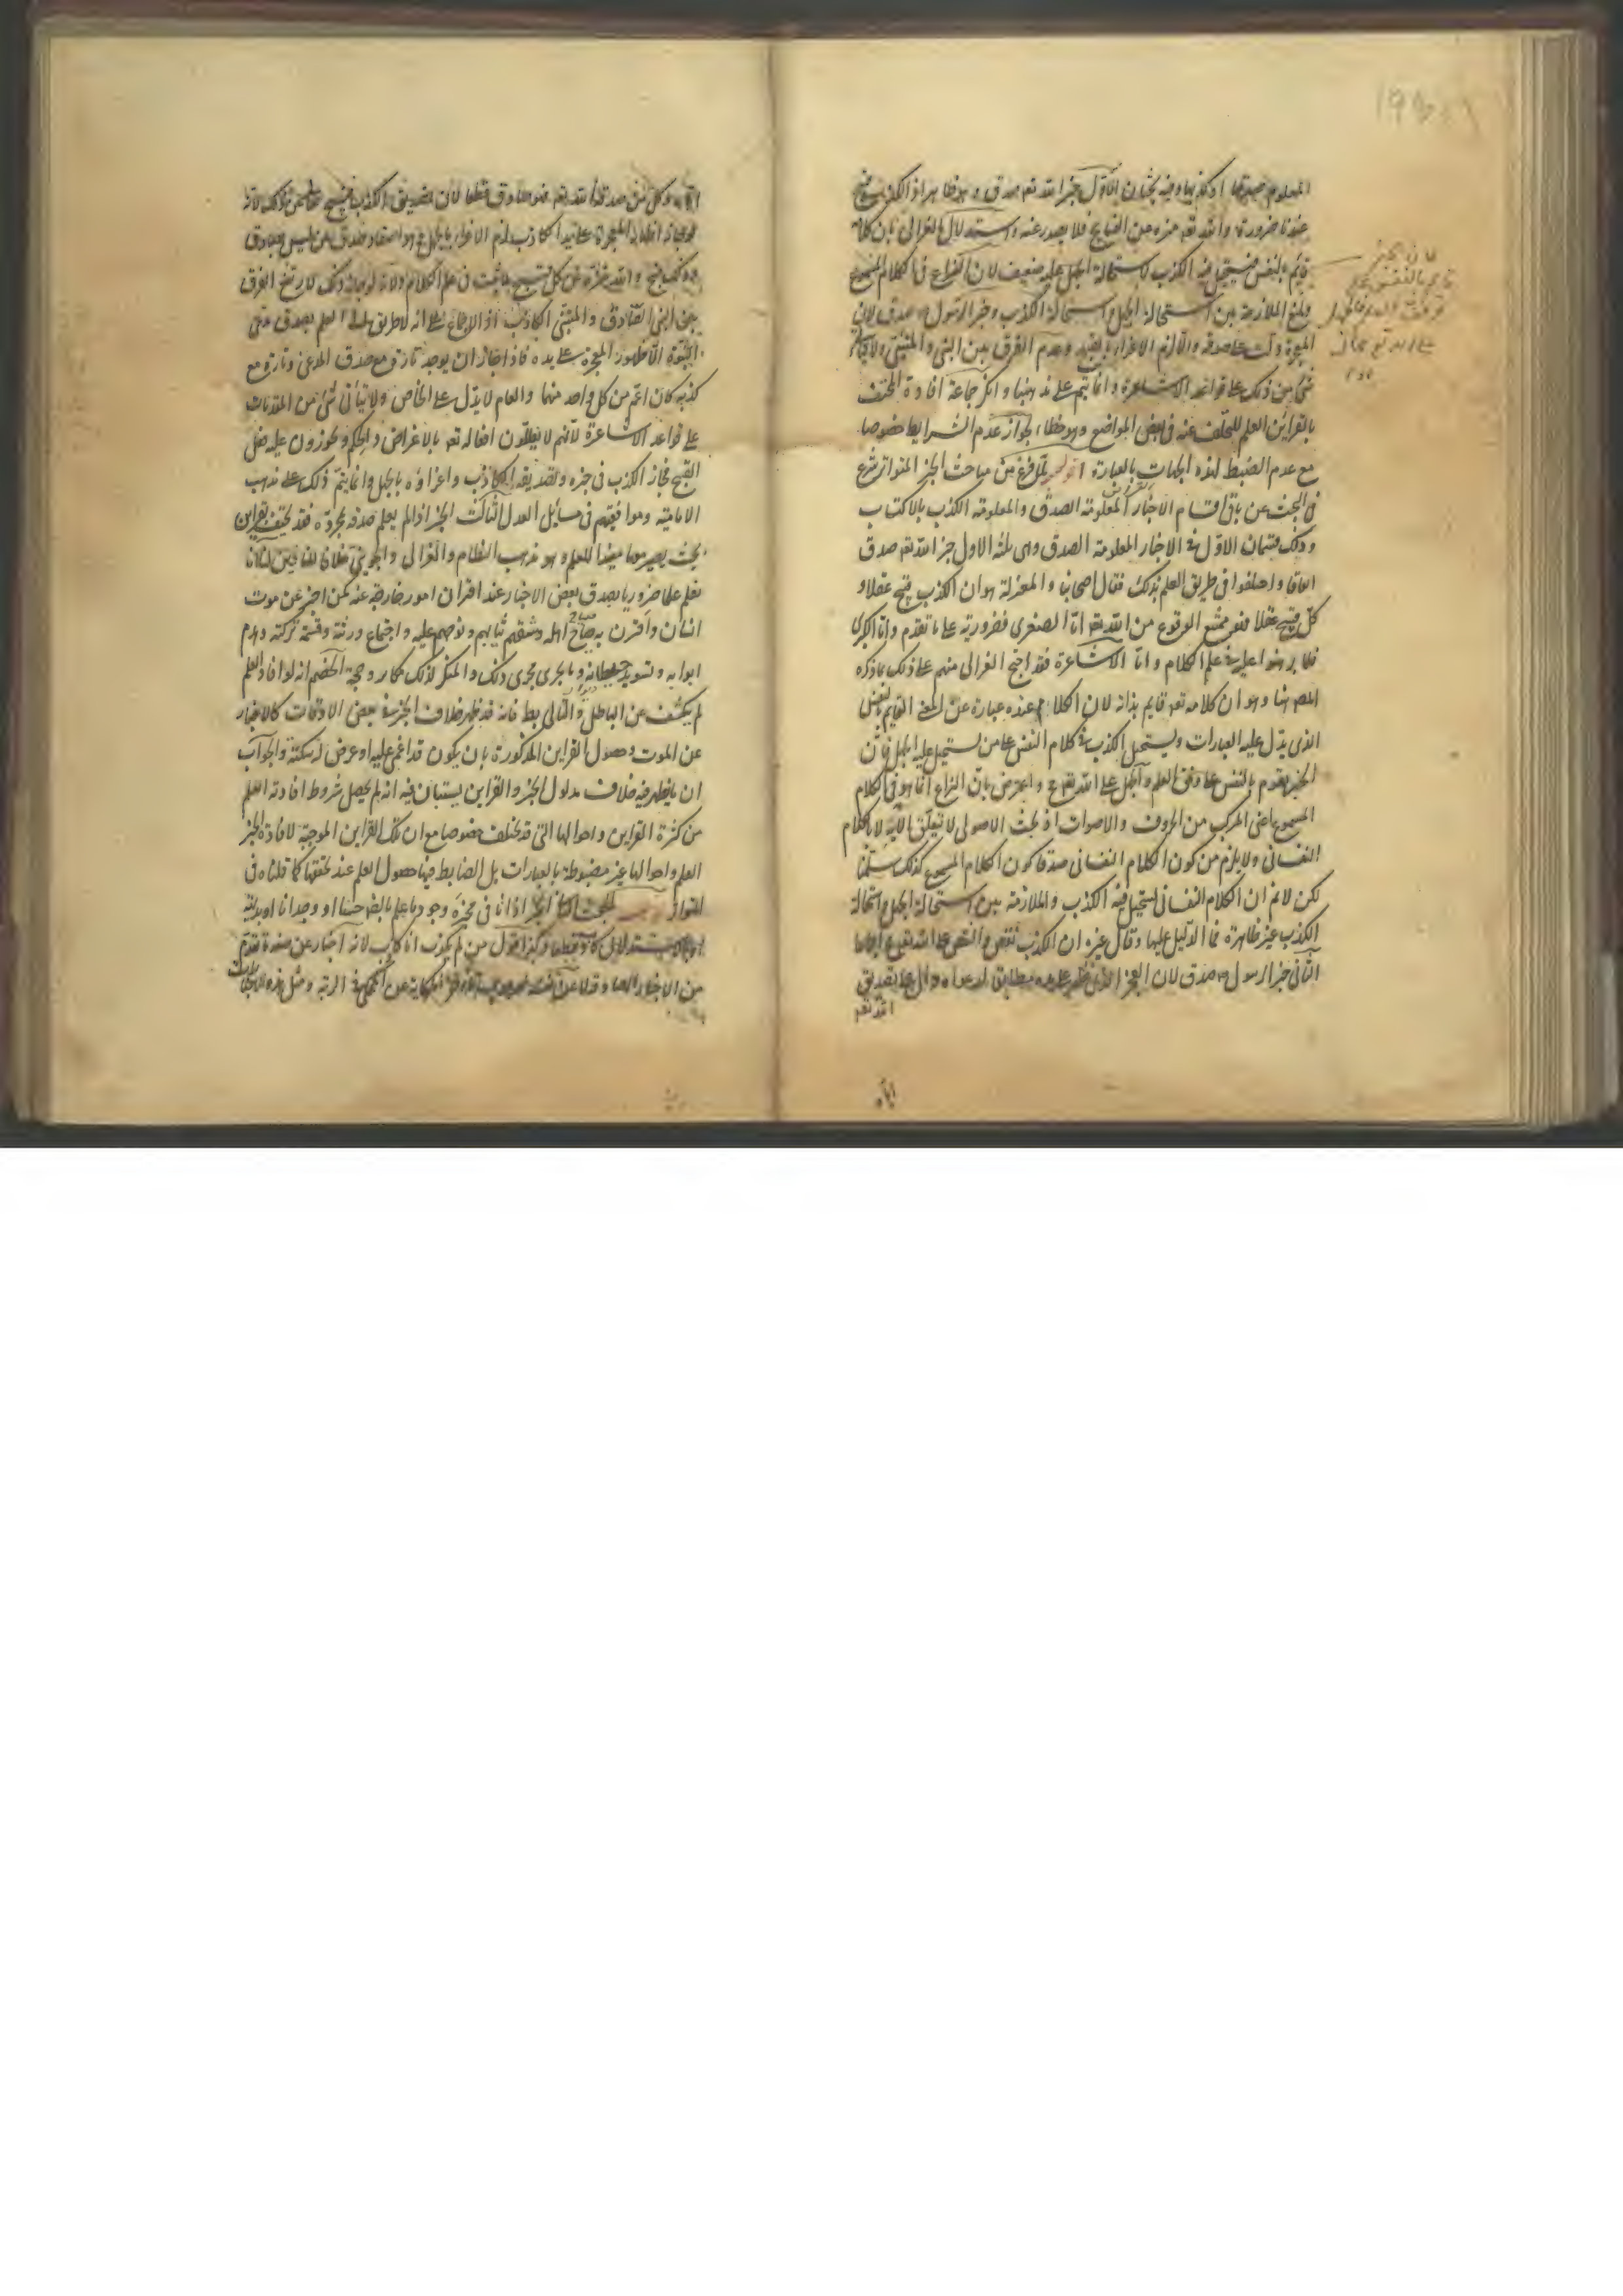 المعلوم صدقها او كذبها وفيه بحثان الاول خبر الله تعم صدق وهو ظاهر اذ الكذب قبيح
عندنا ضرورة والله تعم منزه من القبايح فلا يصدر عنه واستدلال الغزالي بان كلامه
قايم بالنفس فيستحيل فيه الكذب لاستحالة الجهل عليه ضعيف لان النزاع في الكلام المسموع
ومنع الملازمة بين استحالة الجهل واستحالة الكذب وخبر الرسول ص صدق لان
المعجزة دلت على صدقه والا لزم الاغراء بالقبيح وعدم الفرق بين النبي والمتنبي ولا يتأتى
شئ من ذلك على قواعد الاشاعرة وانما يتم على مذهبنا وانكر جماعة افادة المحتف
بالقراين العلم للتخلف عنه في بعض المواضع وهو خطاء لجواز عدم الشرايط خصوصا
مع عدم الضبط لهذه الجهات بالعبارة اقول لما فرغ من مباحث الخبر المتواتر شرع
في البحث عن باقي اقسام الاخبار المعلومة الصدق والمعلومة الكذب بالاكتساب
وذلك قسمان الاول في الاخبار المعلومة الصدق وهي ثلثة الاول خبر الله تعم صدق
اتفاقا واختلفوا في طريق العلم بذلك فقال اصحابنا والمعتزلة هو ان الكذب قبيح عقلا و
كل قبيح عقلا فهو ممتنع الوقوع من الله تعم اما الصغرى فضرورية على ما تقدم واما الكبرى
فلما برهنوا عليه في علم الكلام واما الاشاعرة فقد احتج الغزالي منهم على ذلك بما ذكره
المص هنا وهو ان كلامه تعم قايم بذاته لان الكلام عنده عبارة عن المعنى القايم بالنفس
الذي يدل عليه العبارات ويستحيل الكذب في كلام النفس على من يستحيل عليه الجهل فان
الخبر يقوم بالنفس على وفق العلم والجهل على الله تع مح واعترض بان النزاع انما هو في الكلام
المسموع اعنى المركب من الحروف والاصوات اذ بحث الاصولي لا يتعلق الا به لا بالكلام
النفساني ولا يلزم من كون الكلام النفساني صدقا كون الكلام المسموع كذلك سلمنا
لكن لا نم ان الكلام النفساني يستحيل فيه الكذب والملازمة بين استحالة الجهل واستحالة
الكذب غير ظاهرة فما الدليل عليها وقال غيره ان الكذب نقص والنقص على الله تع مح اجماعا
الثاني خبر الرسول ص صدق لان المعجز الذي ظهر على يده مطابق لدعواه دال على تصديق
الله تعم
الله وكل من صدقه الله تعم فهو صادق قطعا لان تصديق الكذاب قبيح
لو جاز اظهار المعجزة على يد الكاذب لزم الاغراء بالجهل وهو اعتقاد صدق من ليس بصادق
وذلك قبيح والله منزه عن كل قبيح لما ثبت في علم الكلام ولانه لو جاز ذلك لارتفع الفرق
بين النبي الصادق والمتنبي الكاذب اذ الاجماع على انه لا طريق لنا الى العلم بصدق مدعي
النبوة الا ظهور المعجزة على يده فاذا جاز ان يوجد تارة مع صدق المدعي وتارة مع
كذبه كان اعم من كل واحد منهما والعام لا يدل على الخاص ولا يتأتى شئ من المقدمات
على قواعد الاشاعرة لانهم لا يعللون افعاله تعم بالاغراض والحكم ويجوزون عليه فعل
القبيح فجاز الكذب في خبره وتصديقه الكاذب واغراؤه بالجهل وانما يتم ذلك على مذهب
الامامية وموافقيهم في مسائل العدل الثالث الخبر اذا لم يعلم صدقه بمجرده فقد يحتف بقراين
بحيث يصير معها مفيدا للعلم وهو مذهب النظام والغزالي والجويني خلافا للباقين لنا انا
نعلم علما ضروريا بصدق بعض الاخبار عند اقتران امور خارجة عنه كمن اخبر عن موت
انسان واقترن به صياح اهله وشقهم ثيابهم ونوحهم عليه واجتماع ورثته وقسمة تركته وهدم
ابوابه وتسويد حيطانه وما يجري مجرى ذلك والمنكر لذلك مكابر وحجة الخصم انه لو افاد العلم
لم يكشف عن الباطل والتالي بط فانه قد ظهر خلاف الخبر في بعض الاوقات كالاخبار
عن الموت وحصول القراين المذكورة بان يكون قد اغمي عليه او عرض له سكتة والجواب
ان ما يظهر فيه خلاف مدلول الخبر والقراين يستبان فيه انه لم يحصل شروط افادته العلم
من كثرة القراين واحوالها التي قد تختلف خصوصا مع ان تلك القراين الموجبة لافادة الخبر
العلم واحوالها غير مضبوطة بالعبارات بل الضابط فيها حصول العلم عند تحققها كما قلناه في
التواتر البحث الثاني الخبر اذا نافى مخبره وجود ما علم بالضرورة حسا او وجدانا او بديهة
او بالاستدلال كان كذبا قطعا وكذا قول من لم يكذب انا كاذب لانه اخبار عن صفة تقدم
من الاخبار